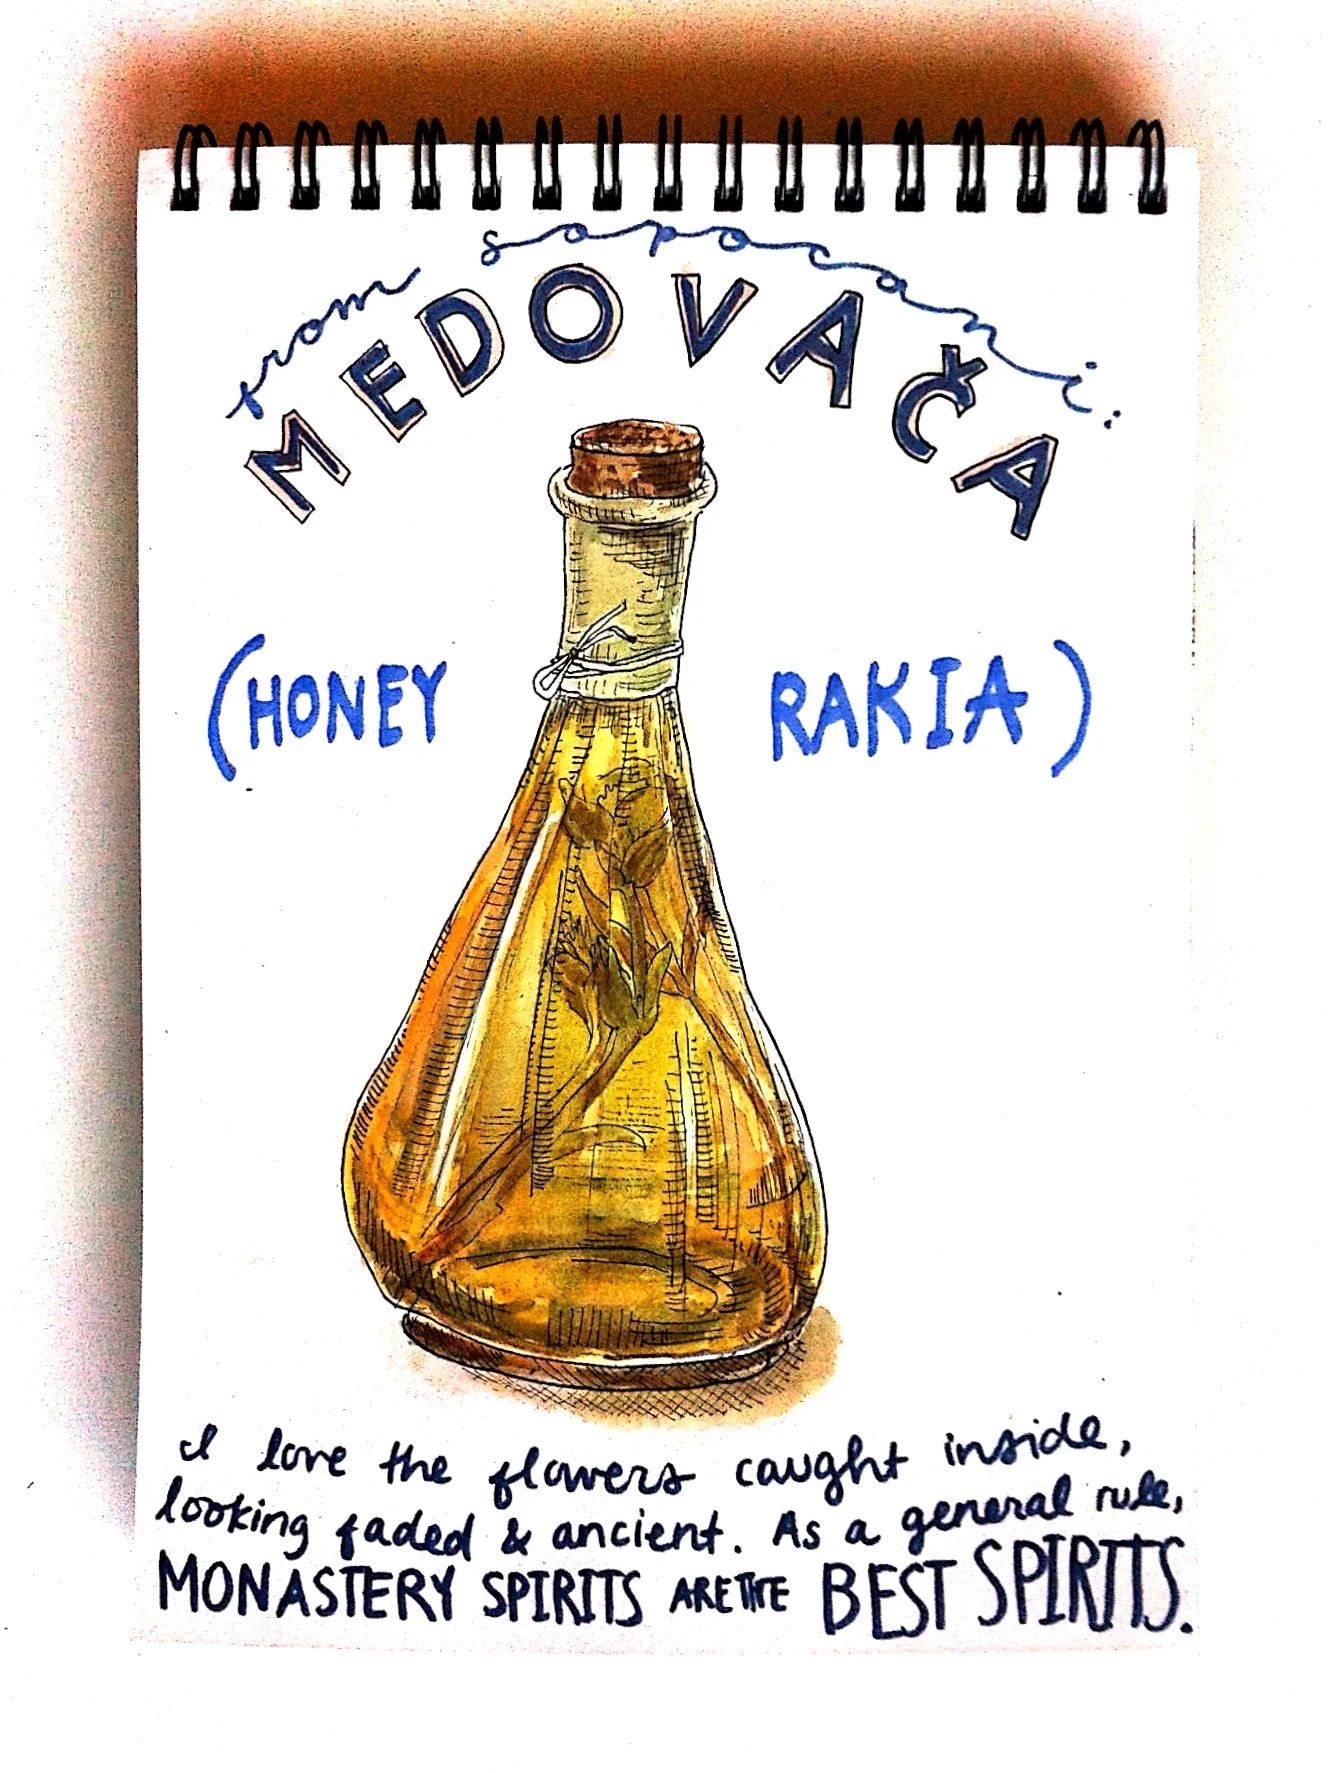 from sopocani:
MEDOVAČA
(HONEY RAKIA)
I love the flowers caught inside,
looking faded & ancient. As a general rule,
MONASTERY SPIRITS ARE THE BEST SPIRITS.